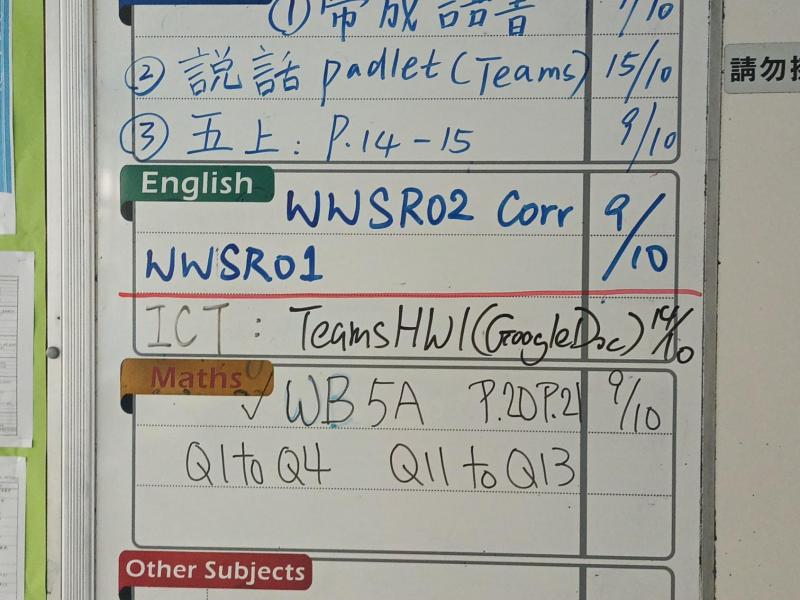 ① 常成語書 9/10
② 説話 padlet (Teams) 15/10
③ 五上: P.14-15 9/10
請勿
English
WWSR02 Corr 9/10
WWSR01
ICT: TeamsHW1(GoogleDoc) 14/10
Maths
✓ WB 5A P.20 P.21 9/10
Q1 to Q4 Q11 to Q13
Other Subjects